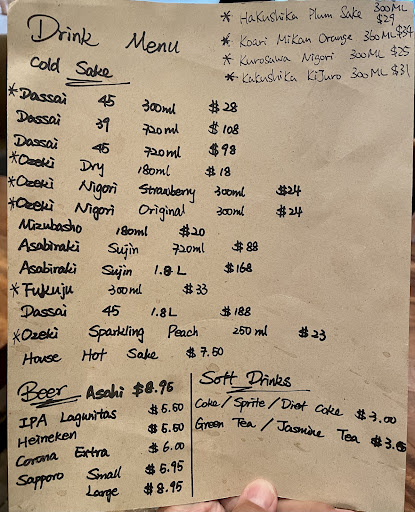 Drink Menu
Cold Sake
* Hakushika Plum Sake 300ML $29
* Koari Mikan Orange 360ML $34
* Kurosawa Nigori 300ML $25
* Kakushika KiJuro 300ML $31
* Dassai 45 300ml $28
Dassai 39 720ml $108
Dassai 45 720ml $98
* Ozeki Dry 180ml $18
* Ozeki Nigori Strawberry 300ml $24
* Ozeki Nigori Original 300ml $24
Mizubasho 180ml $20
Asabiraki Sujin 720ml $88
Asabiraki Sujin 1.8L $168
* Fukuju 300ml $33
Dassai 45 1.8L $188
* Ozeki Sparkling Peach 250ml $23
House Hot Sake $7.50
Beer Asahi $8.95
IPA Lagunitas $5.50
Heineken $5.50
Corona Extra $6.00
Sapporo Small $5.95
Large $8.95
Soft Drinks
Coke / Sprite / Diet Coke $3.00
Green Tea / Jasmine Tea